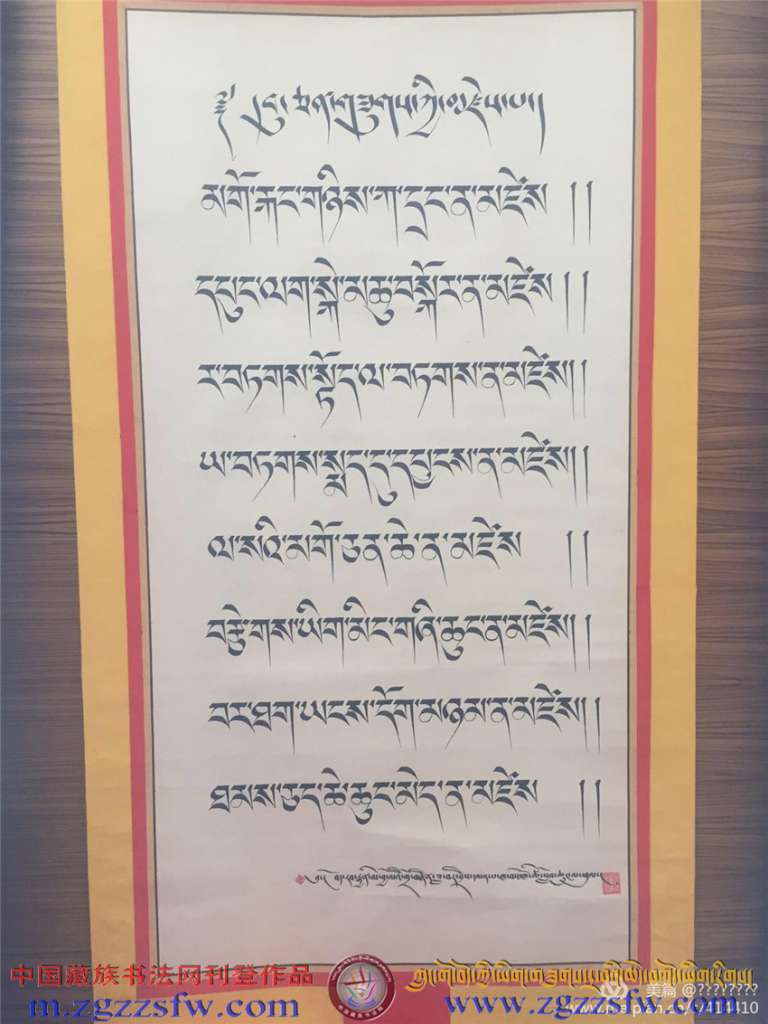 མགོ་རྐང་གཉིས་ཀ་དྲང་ན་མཛེས། །
དཔུང་ལག་སྒེ་མཆུ་བསྐོར་ན་མཛེས། །
ར་བཏགས་སྟོད་ལ་བཏགས་ན་མཛེས། །
ཡ་བཏགས་སྨད་དུ་དཔྱངས་ན་མཛེས། །
ལ་སའི་མགོ་ཅན་ཆེ་ན་མཛེས། །
བརྩེགས་ཡིག་མིང་གཞི་ཆུང་ན་མཛེས། །
བར་ཐག་ཡངས་དོག་མཉམ་ན་མཛེས། །
ཐམས་ཅད་ཆེ་ཆུང་མེད་ན་མཛེས། །
中国藏族书法网刊登作品
m.zgzzsfw.com
www.zgzzsfw.com
美篇 @????????